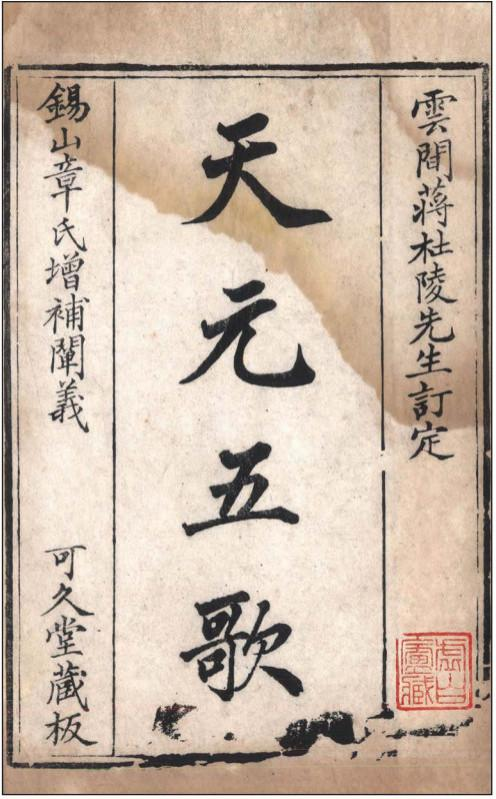 雲間蔣杜陵先生訂定
天元五歌
錫山章氏增補闡義
可久堂藏板